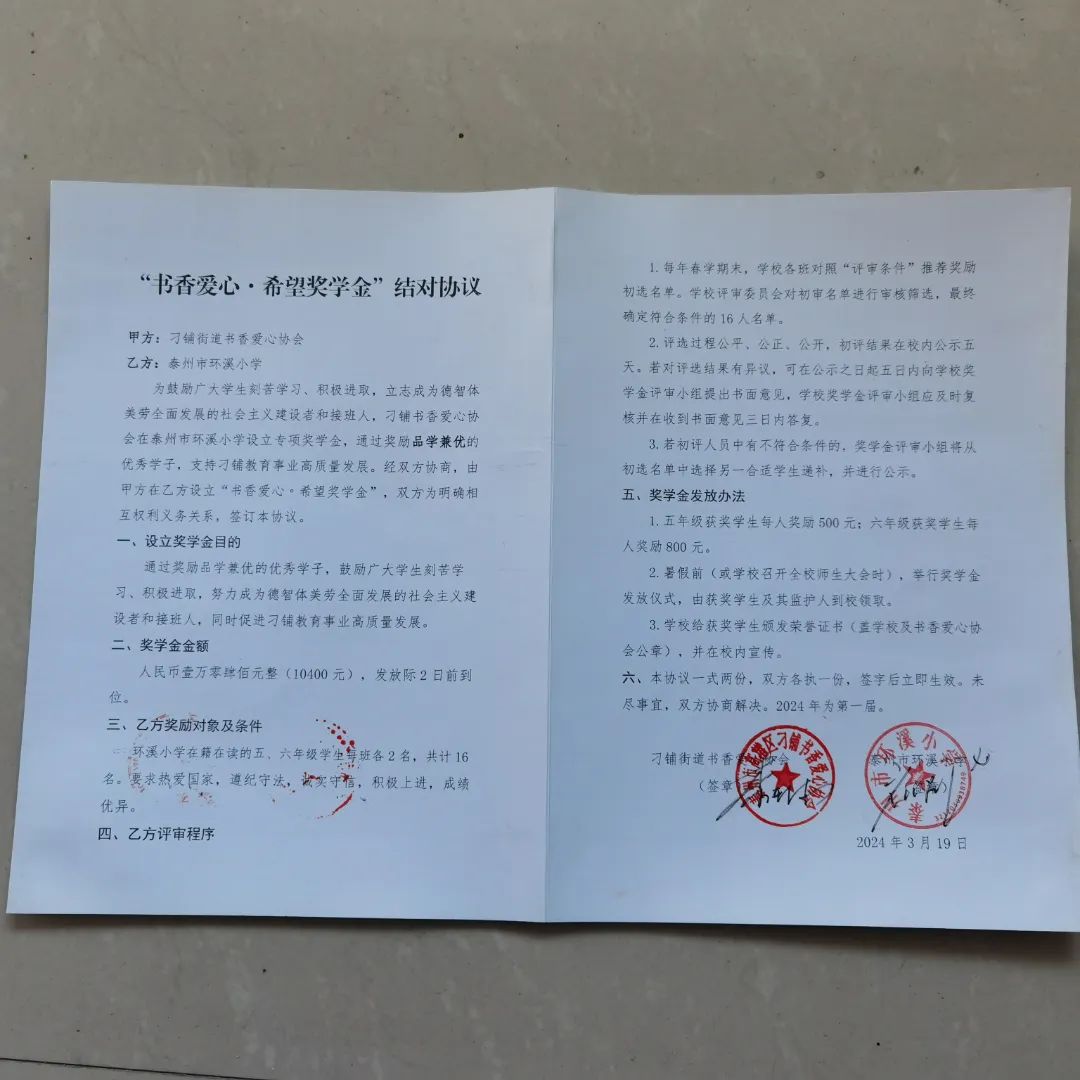 “书香爱心·希望奖学金”结对协议
甲方：刁铺街道书香爱心协会
乙方：泰州市环溪小学
为鼓励广大学生刻苦学习、积极进取，立志成为德智体
美劳全面发展的社会主义建设者和接班人，刁铺书香爱心协
会在泰州市环溪小学设立专项奖学金，通过奖励品学兼优的
优秀学子，支持刁铺教育事业高质量发展。经双方协商，由
甲方在乙方设立“书香爱心·希望奖学金”，双方为明确相
互权利义务关系，签订本协议。
一、设立奖学金目的
通过奖励品学兼优的优秀学子，鼓励广大学生刻苦学
习、积极进取，努力成为德智体美劳全面发展的社会主义建
设者和接班人，同时促进刁铺教育事业高质量发展。
二、奖学金金额
人民币壹万零肆佰元整（10400 元），发放际 2 日前到
位。
三、乙方奖励对象及条件
环溪小学在籍在读的五、六年级学生每班各 2 名，共计 16
名。要求热爱国家，遵纪守法，诚实守信，积极上进，成绩
优异。
四、乙方评审程序
1. 每年春学期末，学校各班对照“评审条件”推荐奖励
初选名单。学校评审委员会对初审名单进行审核筛选，最终
确定符合条件的 16 人名单。
2. 评选过程公平、公正、公开，初评结果在校内公示五
天。若对评选结果有异议，可在公示之日起五日内向学校奖
学金评审小组提出书面意见，学校奖学金评审小组应及时复
核并在收到书面意见三日内答复。
3. 若初评人员中有不符合条件的，奖学金评审小组将从
初选名单中选择另一合适学生递补，并进行公示。
五、奖学金发放办法
1. 五年级获奖学生每人奖励 500 元；六年级获奖学生每
人奖励 800 元。
2. 暑假前（或学校召开全校师生大会时），举行奖学金
发放仪式，由获奖学生及其监护人到校领取。
3. 学校给获奖学生颁发荣誉证书（盖学校及书香爱心协
会公章），并在校内宣传。
六、本协议一式两份，双方各执一份，签字后立即生效。未
尽事宜，双方协商解决。2024 年为第一届。
刁铺街道书香爱心协会 泰州市环溪小学
（签章）
2024 年 3 月 19 日